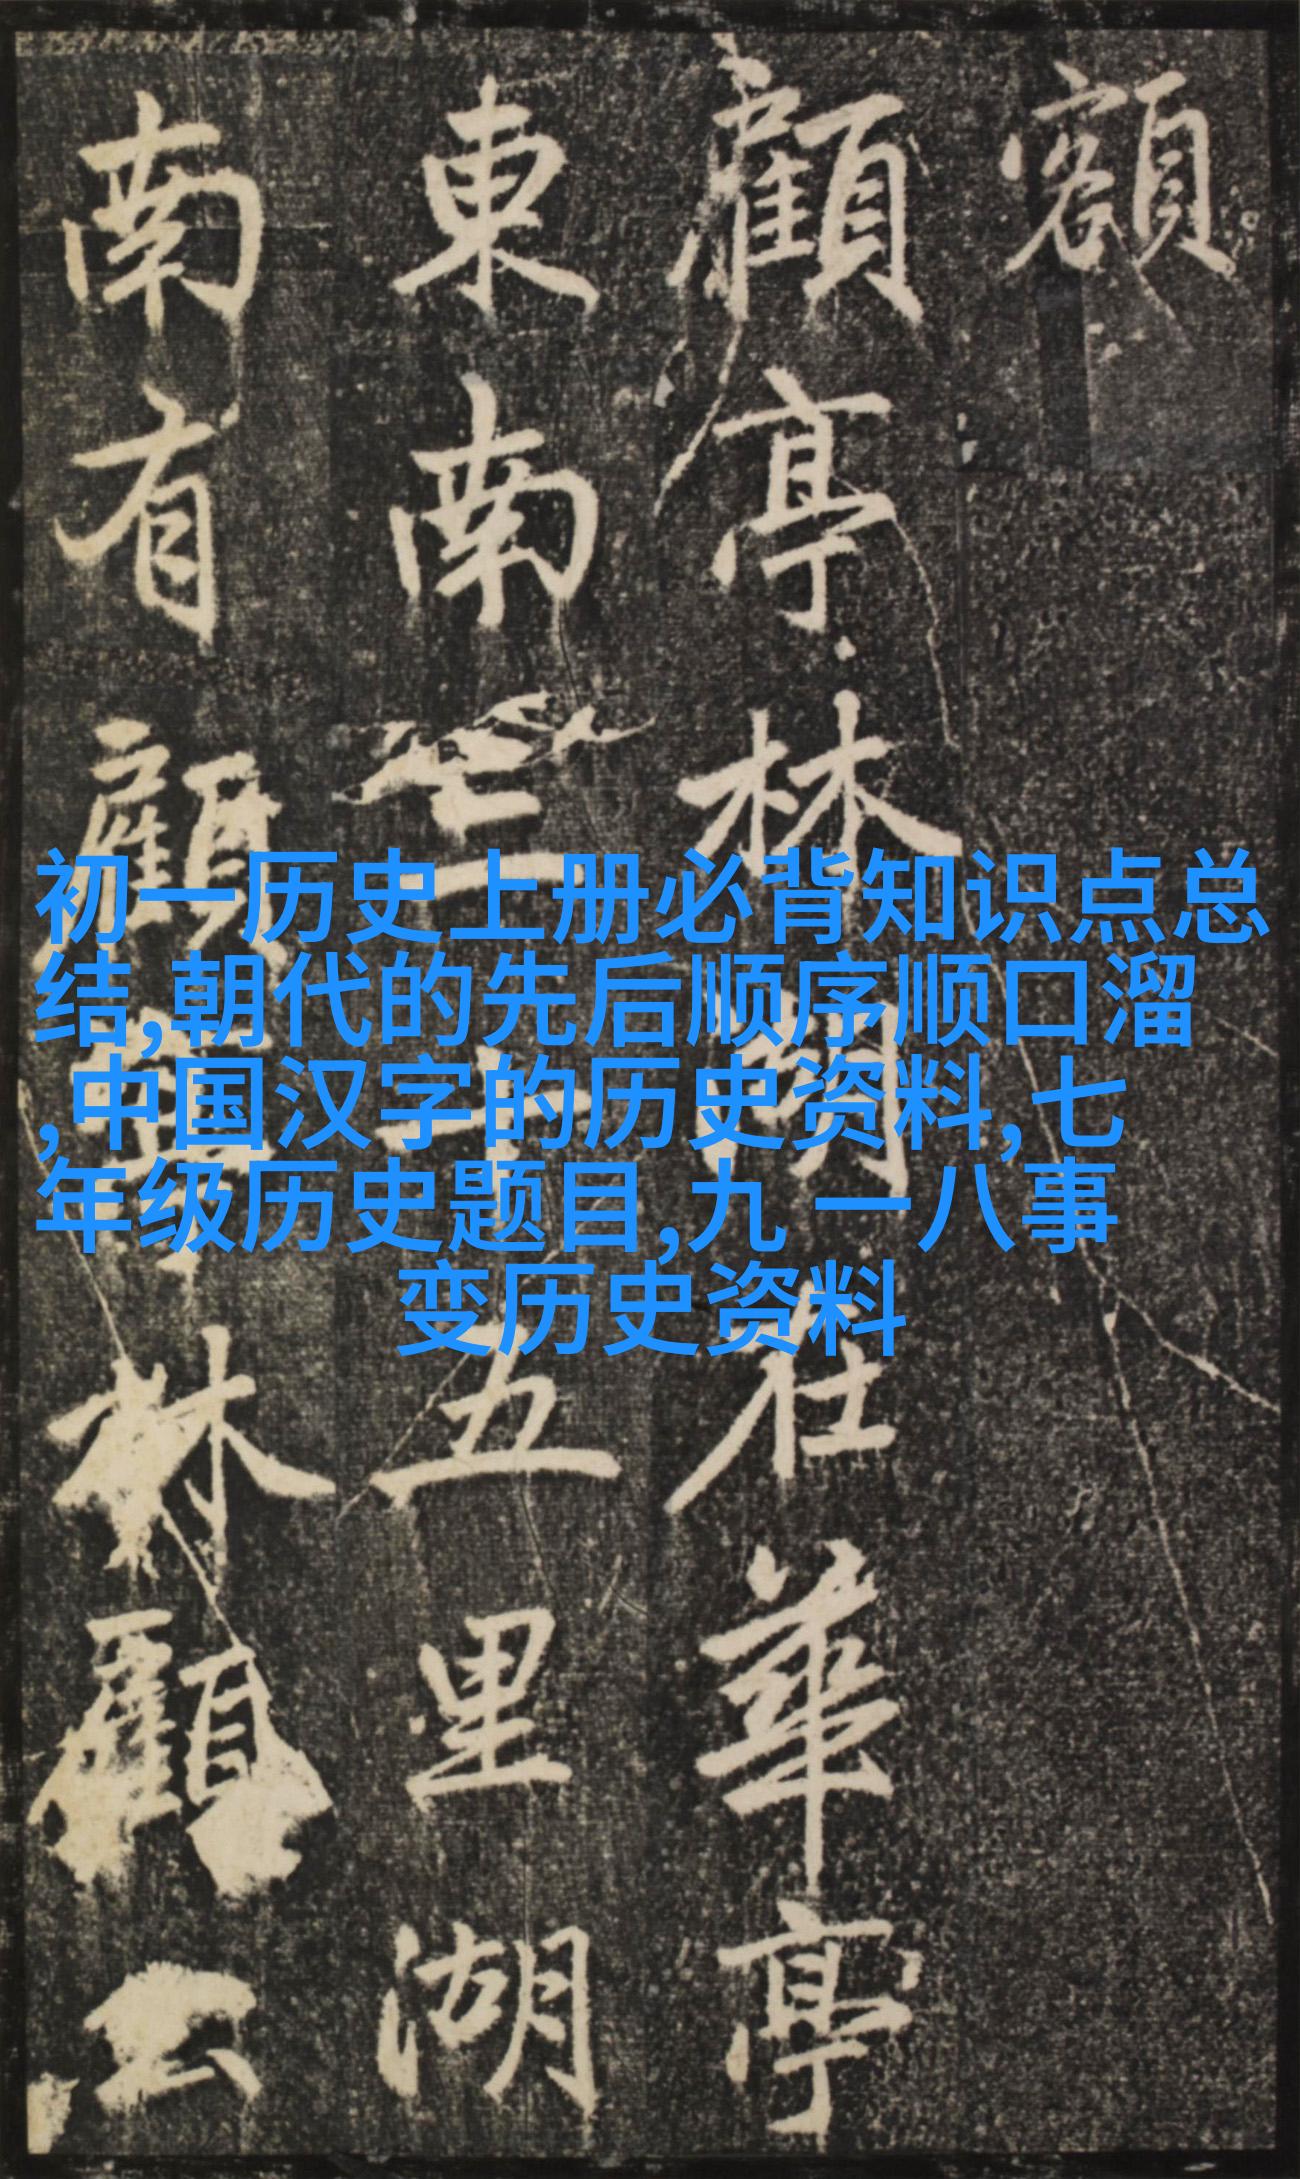 額
顧亭林湖在華亭
東南三十五里湖
南有顧亭林顧公
初一历史上册必背知识点总
结,朝代的先后顺序顺口溜
,中国汉字的历史资料,七
年级历史题目,九 一八事
变历史资料